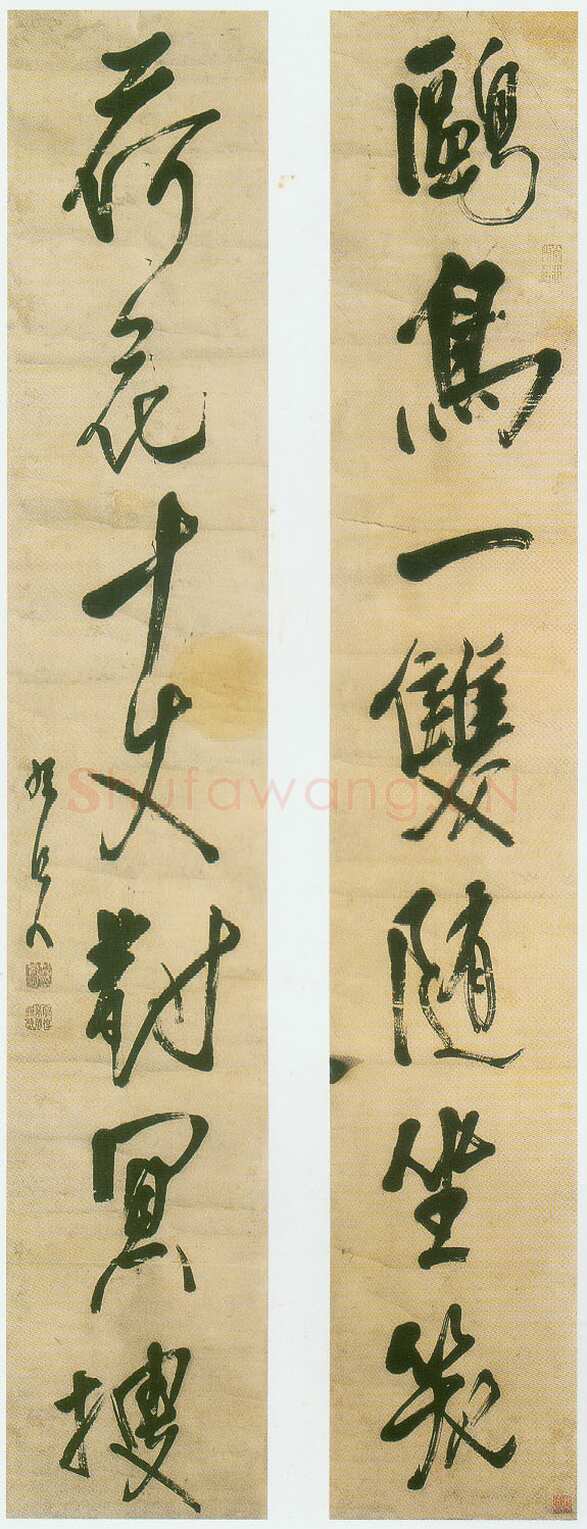 鷗鳥一雙随坐笑
荷花十丈對冥搜
Shufawang.CN